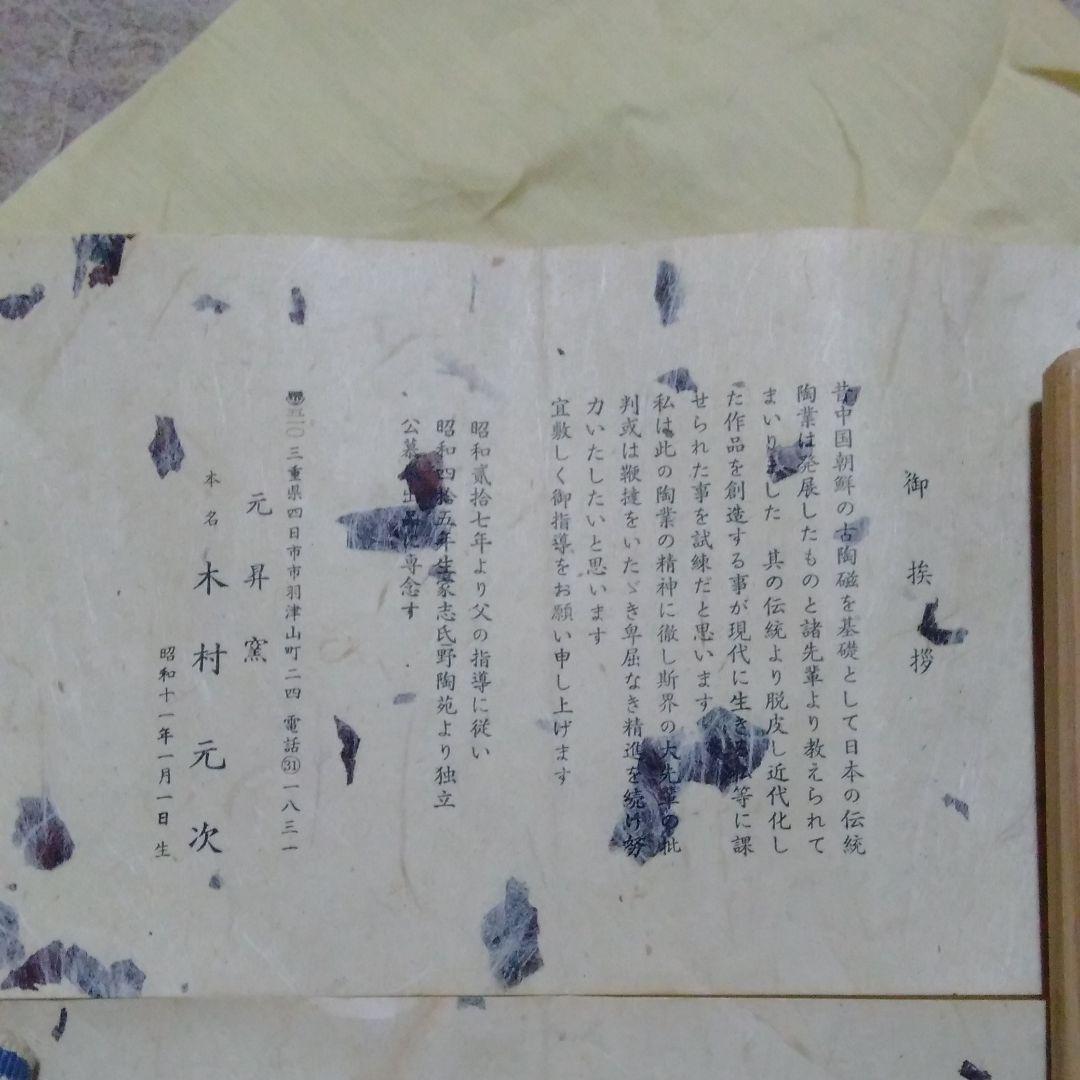 御挨拶
昔中国朝鮮の古陶磁を基礎として日本の伝統
陶業は発展したものと諸先輩より教えられて
まいりました 其の伝統より脱皮し近代化し
た作品を創造する事が現代に生きる私等に課
せられた事を試練だと思います
私は此の陶業の精神に徹し斯界の大先輩の批
判或は鞭撻をいたゞき卑屈なき精進を続け努
力いたしたいと思います
宜敷しく御指導をお願い申し上げます
昭和貳拾七年より父の指導に従い
昭和四拾五年生家志氏野陶苑より独立
公募出品に専念す
五一〇 三重県四日市市羽津山町二四 電話㉛一八三一
元昇窯
本名 木村元次
昭和十一年一月一日生